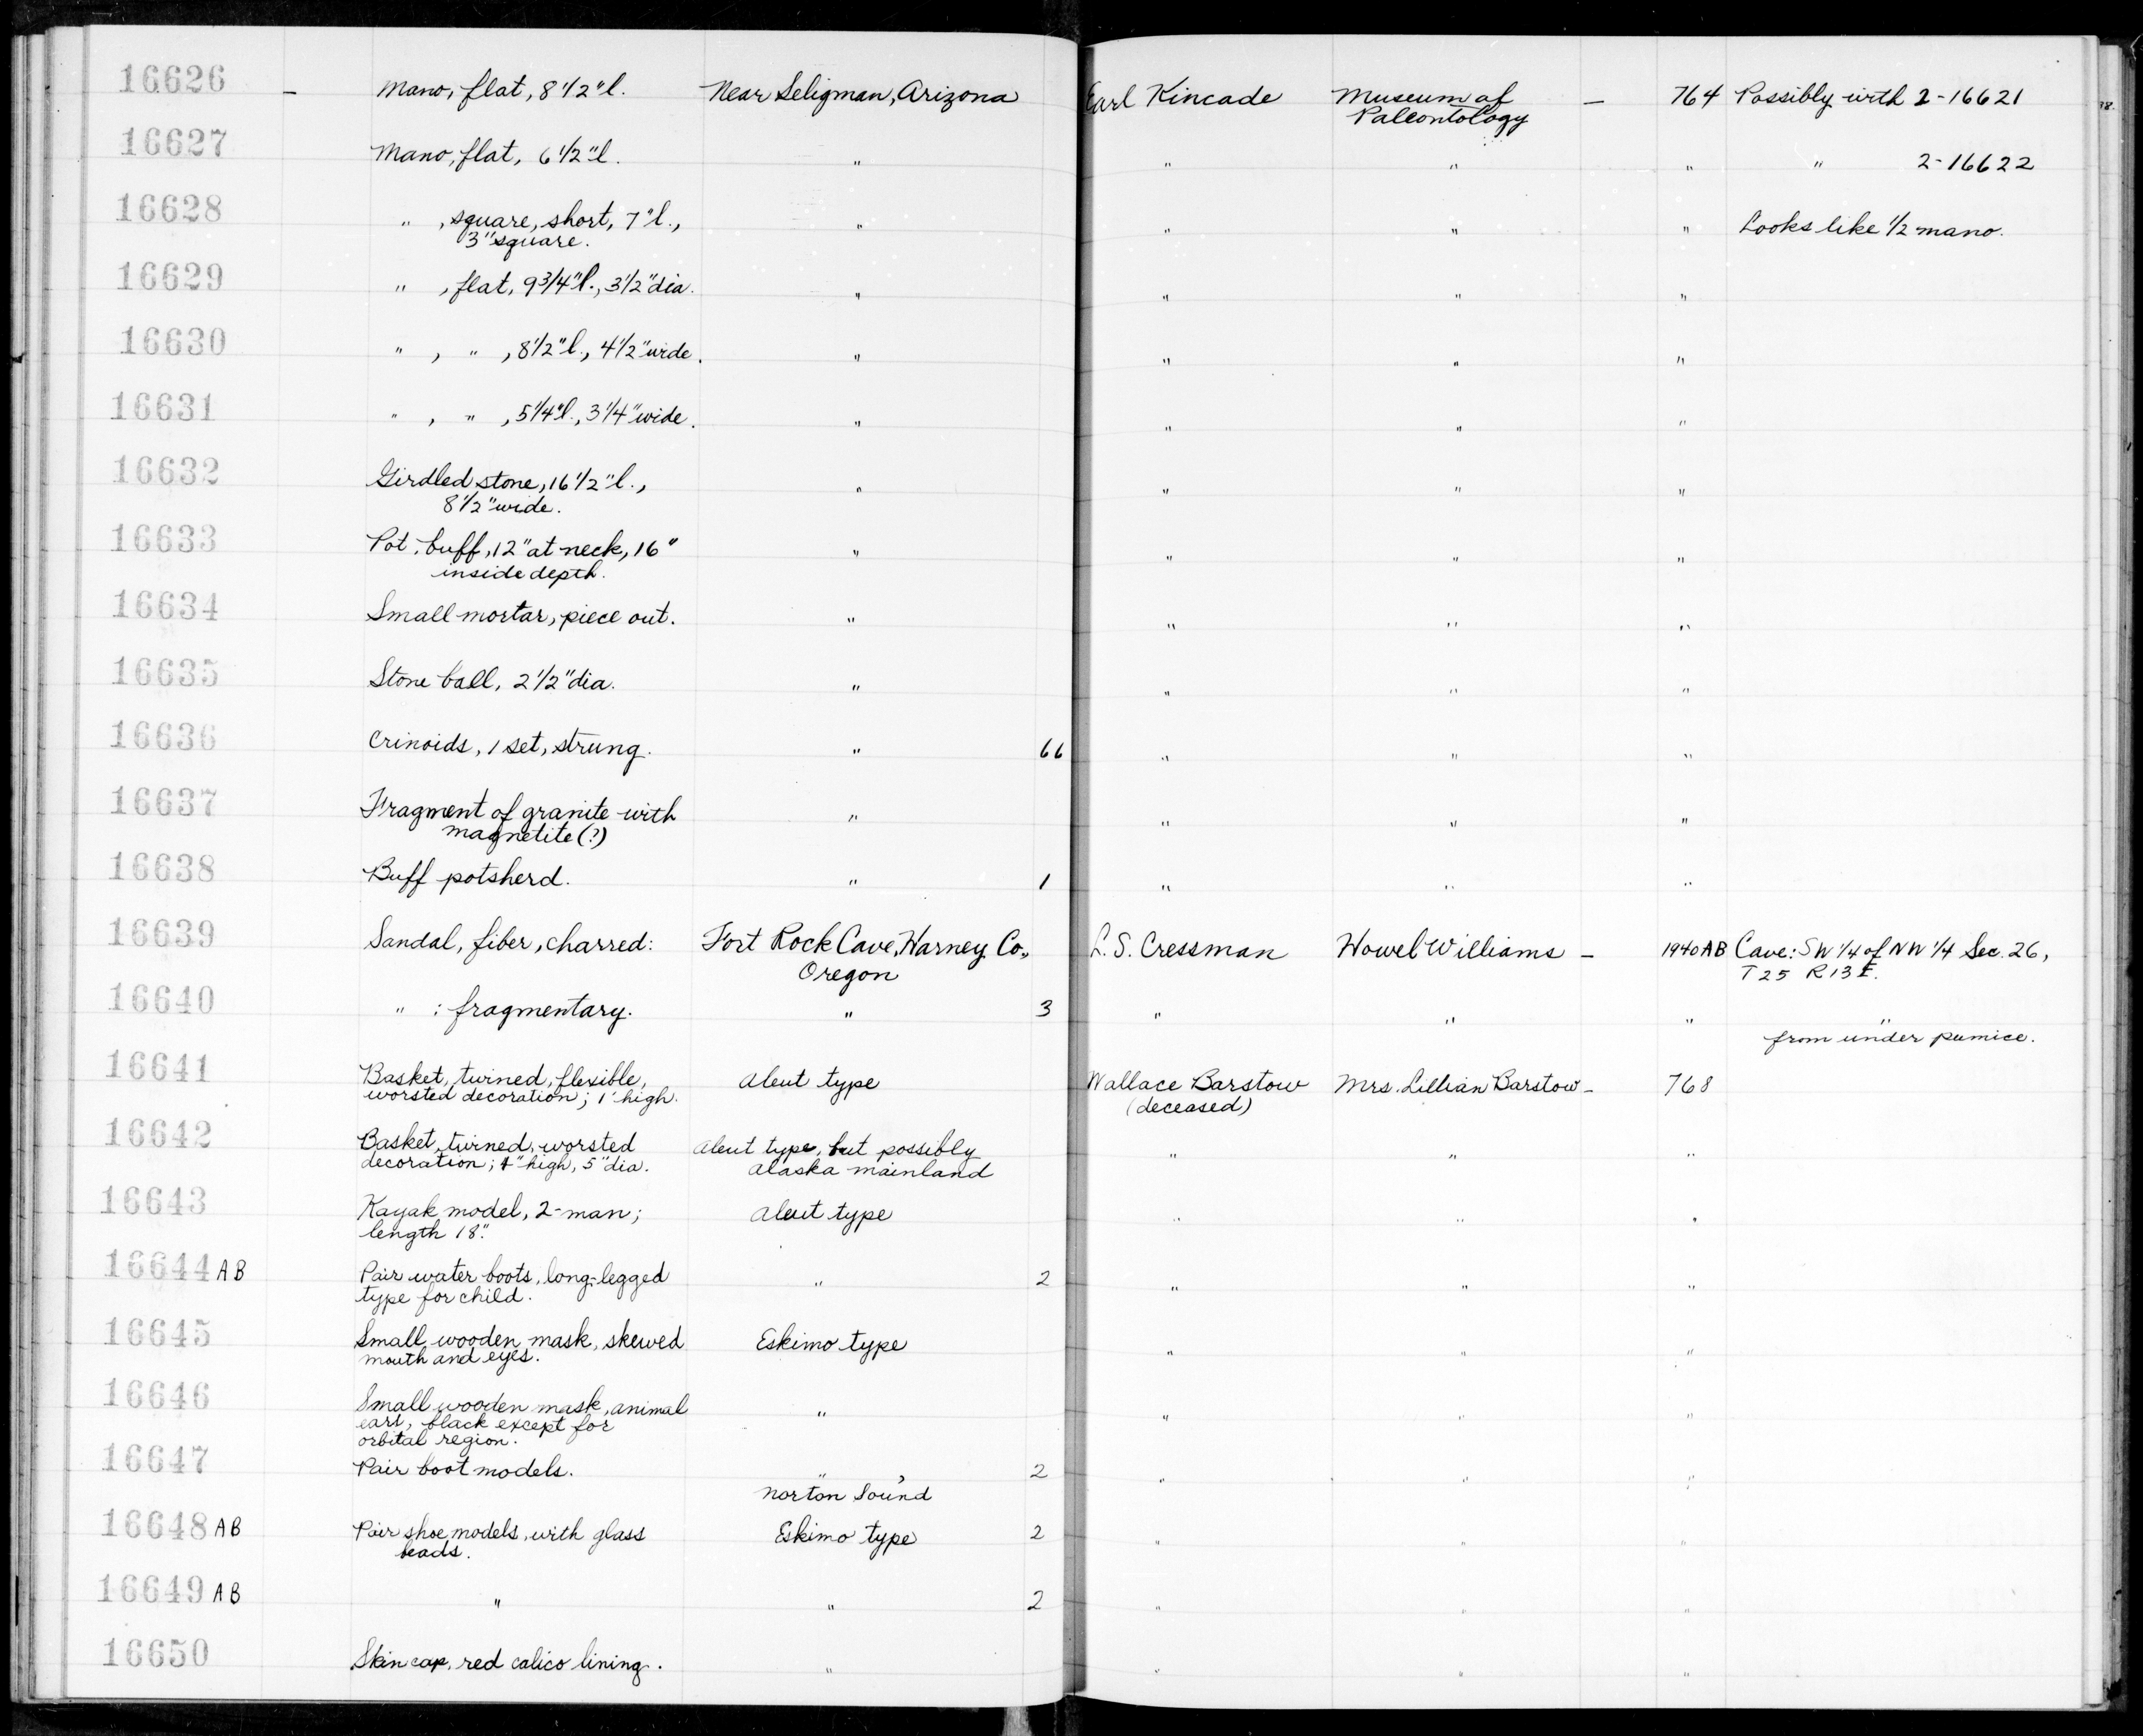 16626 — Mano, flat, 8 1/2" l. Near Seligman, Arizona Earl Kincade Museum of — 764 Possibly with 2-16621
Paleontology
16627 Mano, flat, 6 1/2" l. " " " " " 2-16622
16628 " , square, short, 7" l., " " " " Looks like 1/2 mano.
3" square.
16629 " , flat, 9 3/4" l., 3 1/2" dia. " " " "
16630 " , " , 8 1/2" l., 4 1/2" wide. " " " "
16631 " , " , 5 1/4" l., 3 1/4" wide. " " " "
16632 Girdled stone, 16 1/2" l., " " " "
8 1/2" wide.
16633 Pot, buff, 12" at neck, 16" " " " "
inside depth.
16634 Small mortar, piece out. " " " "
16635 Stone ball, 2 1/2" dia. " " " "
16636 Crinoids, 1 set, strung. " 66 " " "
16637 Fragment of granite with " " " "
magnetite (?)
16638 Buff potsherd. " 1 " " "
16639 Sandal, fiber, charred: Fort Rock Cave, Harney Co., L. S. Cressman Howel Williams — 1940AB Cave: SW 1/4 of NW 1/4 Sec. 26,
Oregon T25 R13E.
16640 " : fragmentary. " 3 " " " "
from under pumice.
16641 Basket, twined, flexible, Aleut type Wallace Barstow Mrs. Lillian Barstow — 768
worsted decoration; 1' high. (deceased)
16642 Basket, twined, worsted Aleut type, but possibly " " "
decoration; 4" high, 5" dia. Alaska mainland
16643 Kayak model, 2-man; Aleut type " " "
length 18".
16644 AB Pair water boots, long-legged " 2 " " "
type for child.
16645 Small wooden mask, skewed Eskimo type " " "
mouth and eyes.
16646 Small wooden mask, animal " " " "
ears, black except for
orbital region.
16647 Pair boot models. " , 2 " " "
Norton Sound
16648 AB Pair shoe models, with glass Eskimo type 2 " " "
beads.
16649 AB " " 2 " " "
16650 Skin cap, red calico lining. " " " "